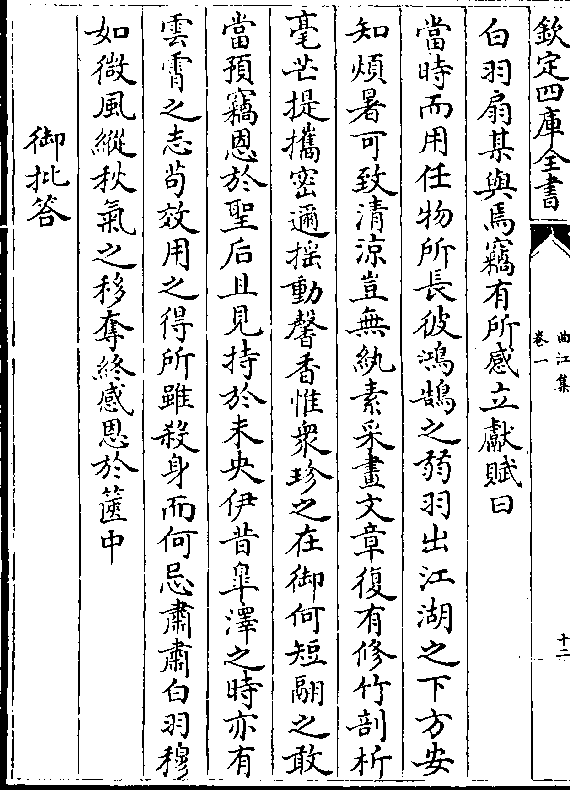 欽定四庫全書
曲江集
卷一
十二
白羽扇某與焉竊有所感立獻賦曰
當時而用任物所長彼鴻鵠之弱羽出江湖之下方安
知煩暑可致清涼豈無紈素采畫文章復有修竹剖析
毫芒提攜密邇揺動馨香惟衆珍之在御何短翮之敢
當預竊恩於聖后且見持於未央伊昔臯澤之時亦有
雲霄之志茍效用之得所雖殺身而何忌肅肅白羽穆
如微風縱秋氣之移奪終感恩於篋中
御批答